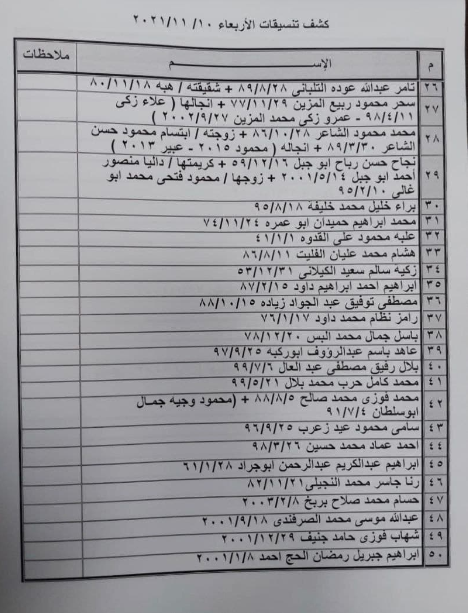 كشف تنسيقات الأربعاء ١٠/ ١١/ ٢٠٢١
م الإســـــم ملاحظات
٢٦ تامر عبدالله عوده التلبانى ٨٩/٨/٢٨ + شقيقته / هبه ٨٠/١١/١٨
٢٧ سحر محمود ربيع المزين ٧٧/١١/٢٩ + انجالها ( علاء زكى
٩٨/٤/١١ - عمرو زكى محمد المزين ٢٠٠٢/٩/٢٧ )
٢٨ محمد محمود الشاعر ٨٦/١٠/٢٨ + زوجته / ابتسام محمود حسن
الشاعر ٨٩/٣/٣٠ + انجاله ( محمود ٢٠١٥ - عبير ٢٠١٣ )
٢٩ نجاح حسن رباح ابو جبل ٥٩/١٢/١٦ + كريمتها / داليا منصور
أحمد ابو جبل ٢٠٠١/٥/١٤ + زوجها / محمود فتحى محمد ابو
غالى ٩٥/٢/١٠
٣٠ براء خليل محمد خليفة ٩٥/٨/١٨
٣١ محمد ابراهيم حميدان ابو عمره ٧٤/١١/٢٤
٣٢ علبه محمود على القدوه ٤١/١/١
٣٣ هشام محمد عليان الفليت ٨٦/٨/١١
٣٤ زكيه سالم سعيد الكيلانى ٥٣/١٢/٣١
٣٥ ابراهيم احمد ابراهيم داود ٨٧/٢/١٥
٣٦ مصطفى توفيق عبد الجواد زياده ٨٨/١٠/١٥
٣٧ رامز نظام محمد داود ٧٦/١/١٧
٣٨ باسل جمال محمد البس ٧٨/١٢/٢٠
٣٩ عاهد باسم عبدالرؤوف ابوركبه ٩٧/٩/٢٥
٤٠ بلال رفيق مصطفى عبد العال ٩٩/٧/٦
٤١ محمد كامل حرب محمد بلال ٩٩/٥/٢١
٤٢ محمد فوزى محمد صالح ٨٨/٨/٥ + (محمود وجيه جمال
ابوسلطان ٩١/٧/٤
٤٣ سامى محمود عيد زعرب ٩٦/٩/٢٥
٤٤ احمد عماد محمد حسين ٩٨/٣/٢٦
٤٥ ابراهيم عبدالكريم عبدالرحمن ابوجراد ٦١/١/٢٨
٤٦ رنا جاسر محمد النجيلى ٨٢/١١/٢١
٤٧ حسام محمد صلاح بربخ ٢٠٠٣/٢/٨
٤٨ عبدالله موسى محمد الصرفندى ٢٠٠١/٩/١٨
٤٩ شهاب فوزى حامد جنيف ٢٠٠١/١٢/٢٩
٥٠ ابراهيم جبريل رمضان الحج احمد ٢٠٠١/١/٨